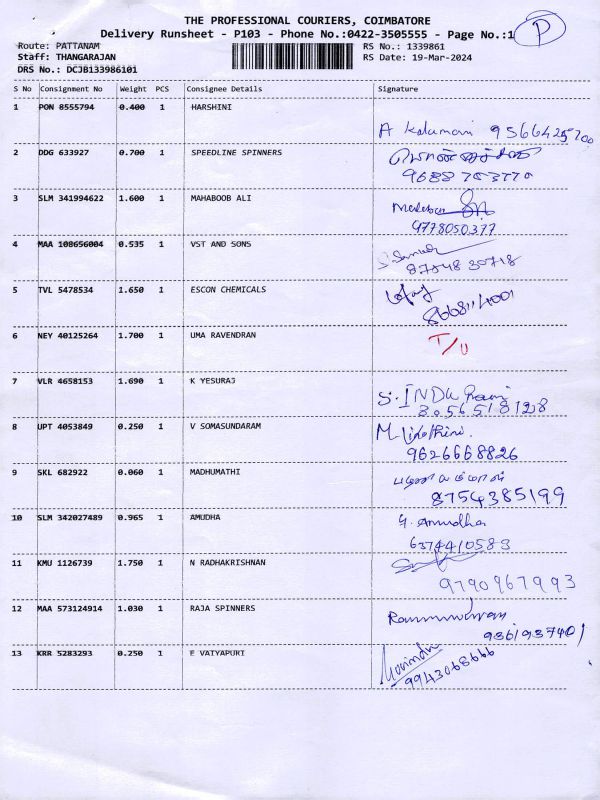 THE PROFESSIONAL COURIERS, COIMBATORE
Delivery Runsheet - P103 - Phone No.:0422-3505555 - Page No.:1 P
Route: PATTANAM RS No.: 1339861
Staff: THANGARAJAN RS Date: 19-Mar-2024
DRS No.: DCJB133986101
S No Consignment No Weight PCS Consignee Details Signature
1 PON 8555794 0.400 1 HARSHINI
A Kalamani
2 DDG 633927 0.700 1 SPEEDLINE SPINNERS
3 SLM 341994622 1.600 1 MAHABOOB ALI
9778050377
4 MAA 108656004 0.535 1 VST AND SONS
87548 30718
5 TVL 5478534 1.650 1 ESCON CHEMICALS
6 NEY 40125264 1.700 1 UMA RAVENDRAN T/U
7 VLR 4658153 1.690 1 K YESURAJ
S. INDU Rani
8056518128
8 UPT 4053849 0.250 1 V SOMASUNDARAM
9626668826
9 SKL 682922 0.060 1 MADHUMATHI
8754385199
10 SLM 342027489 0.965 1 AMUDHA
G. Amudha
6374410583
11 KMU 1126739 1.750 1 N RADHAKRISHNAN
9790967993
12 MAA 573124914 1.030 1 RAJA SPINNERS
9361937401
13 KRR 5283293 0.250 1 E VAIYAPURI
Govindu
9943068666